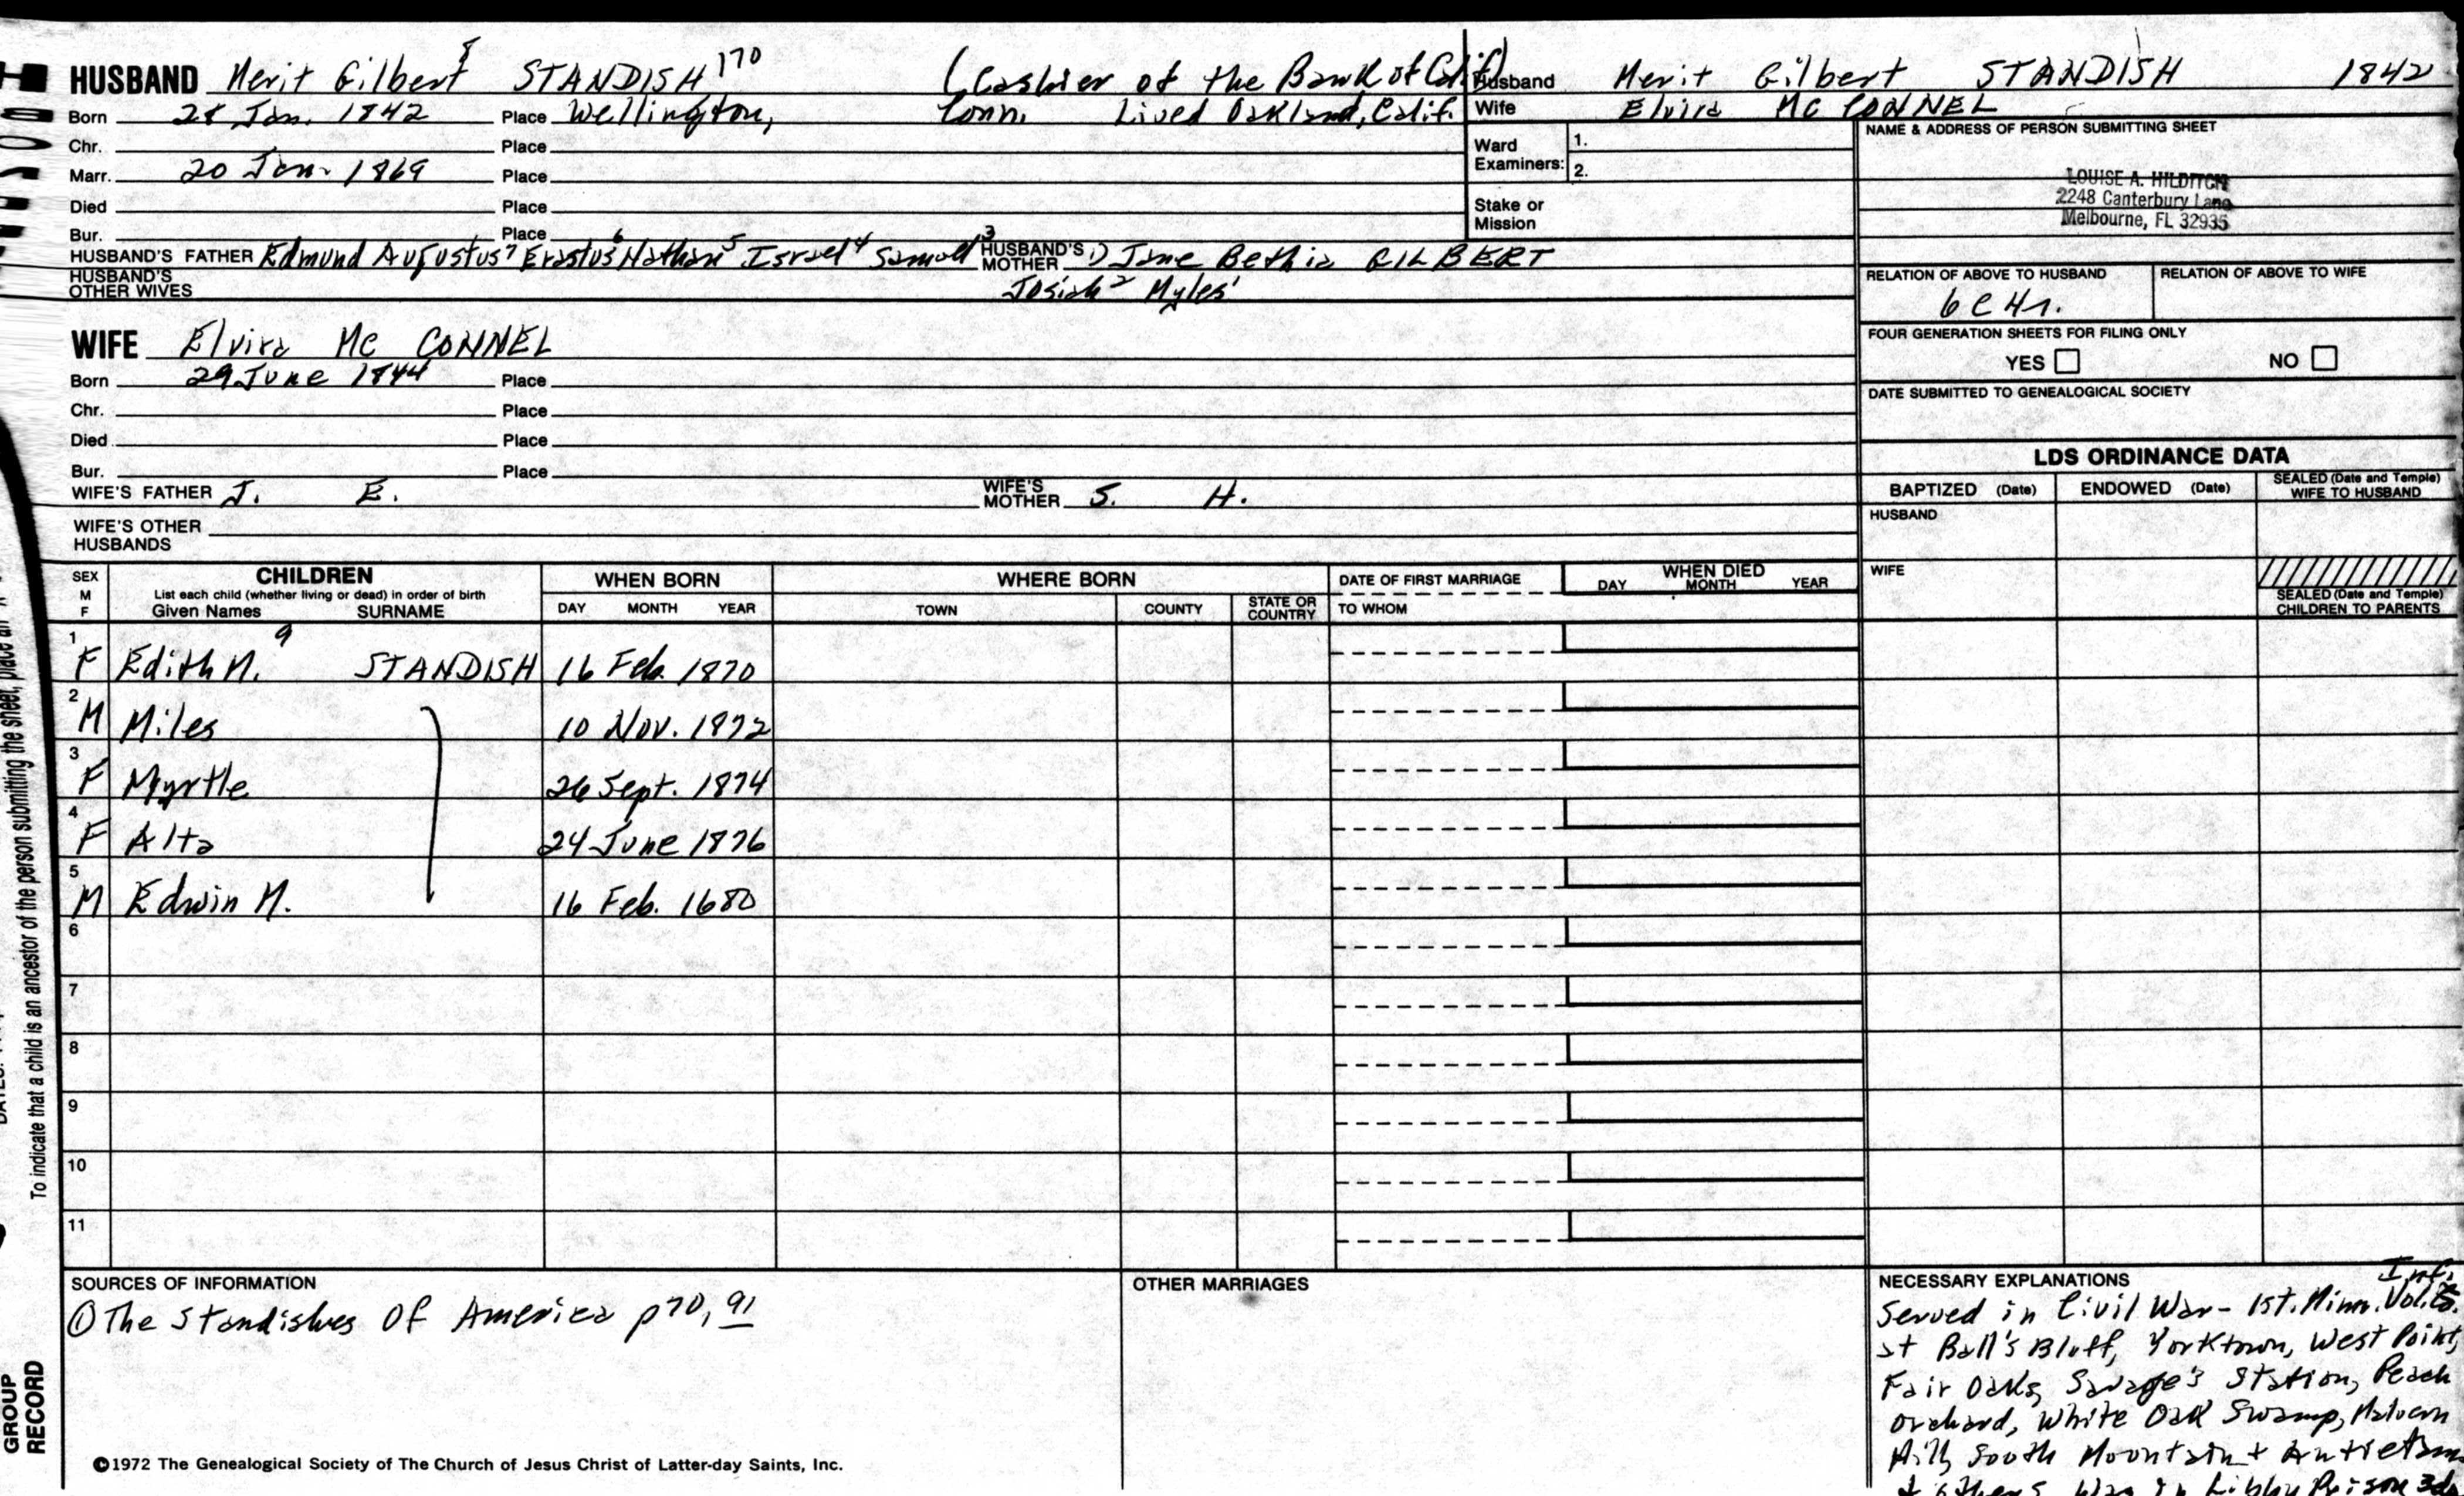 HUSBAND Merit Gilbert 8 STANDISH 170 (Cashier of the Bank of Calif)
Born 28 Jan. 1842 Place Wellington, Conn. Lived Oakland, Calif.
Chr. Place
Marr. 20 Jan. 1869 Place
Died Place
Bur. Place
HUSBAND'S FATHER Edmund Augustus 7 Erastus 6 Nathan 5 Israel 4 Samuel 3 HUSBAND'S MOTHER 1) Jane Bethia GILBERT
HUSBAND'S OTHER WIVES Josiah 2 Myles 1
Husband Merit Gilbert STANDISH 1842
Wife Elvira Mc CONNEL
Ward Examiners: 1.
2.
Stake or Mission
NAME & ADDRESS OF PERSON SUBMITTING SHEET
LOUISE A. HILDITCH
2248 Canterbury Lane
Melbourne, FL 32935
RELATION OF ABOVE TO HUSBAND RELATION OF ABOVE TO WIFE
6c4r.
FOUR GENERATION SHEETS FOR FILING ONLY
YES NO
DATE SUBMITTED TO GENEALOGICAL SOCIETY
WIFE Elvira Mc CONNEL
Born 29 June 1844 Place
Chr. Place
Died Place
Bur. Place
WIFE'S FATHER J. E. WIFE'S MOTHER S. H.
WIFE'S OTHER HUSBANDS
LDS ORDINANCE DATA
BAPTIZED (Date) ENDOWED (Date) SEALED (Date and Temple) WIFE TO HUSBAND
HUSBAND
WIFE
SEALED (Date and Temple) CHILDREN TO PARENTS
SEX M F CHILDREN WHEN BORN WHERE BORN DATE OF FIRST MARRIAGE WHEN DIED
List each child (whether living or dead) in order of birth
Given Names SURNAME DAY MONTH YEAR TOWN COUNTY STATE OR COUNTRY TO WHOM DAY MONTH YEAR
1 F Edith M. 9 STANDISH 16 Feb. 1870
2 M Miles 10 Nov. 1872
3 F Myrtle 26 Sept. 1874
4 F Alta 24 June 1876
5 M Edwin M. 16 Feb. 1680
6
7
8
9
10
11
SOURCES OF INFORMATION
① The Standishes Of America p70, 91
©1972 The Genealogical Society of The Church of Jesus Christ of Latter-day Saints, Inc.
OTHER MARRIAGES
NECESSARY EXPLANATIONS Inf.
Served in Civil War - 1st. Minn. Vol.
at Ball's Bluff, Yorktown, West Point,
Fair Oaks, Savage's Station, Peach
Orchard, White Oak Swamp, Malvern
Hill, South Mountain + Antietam
+ others Was in Libby Prison
To indicate that a child is an ancestor of the person submitting the sheet, place an
GROUP
RECORD